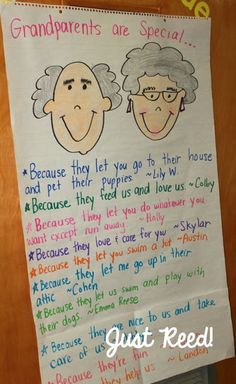 Grandparents are Special...
*Because they let you go to their house
and pet their puppies ~Lily W.
*Because they feed us and love us. ~Colby
*Because they let you do whatever you
want except run away ~Holly
*Because they love & care for you ~Skylar
*Because they let you swim a lot ~Austin
*Because they let me go up in their
attic ~Cohen
*Because they let us swim and play with
their dogs. ~Emma Reese
*Because they're nice to us and take
care of us
*Because they're fun ~Landon
they help us
Just Reed!